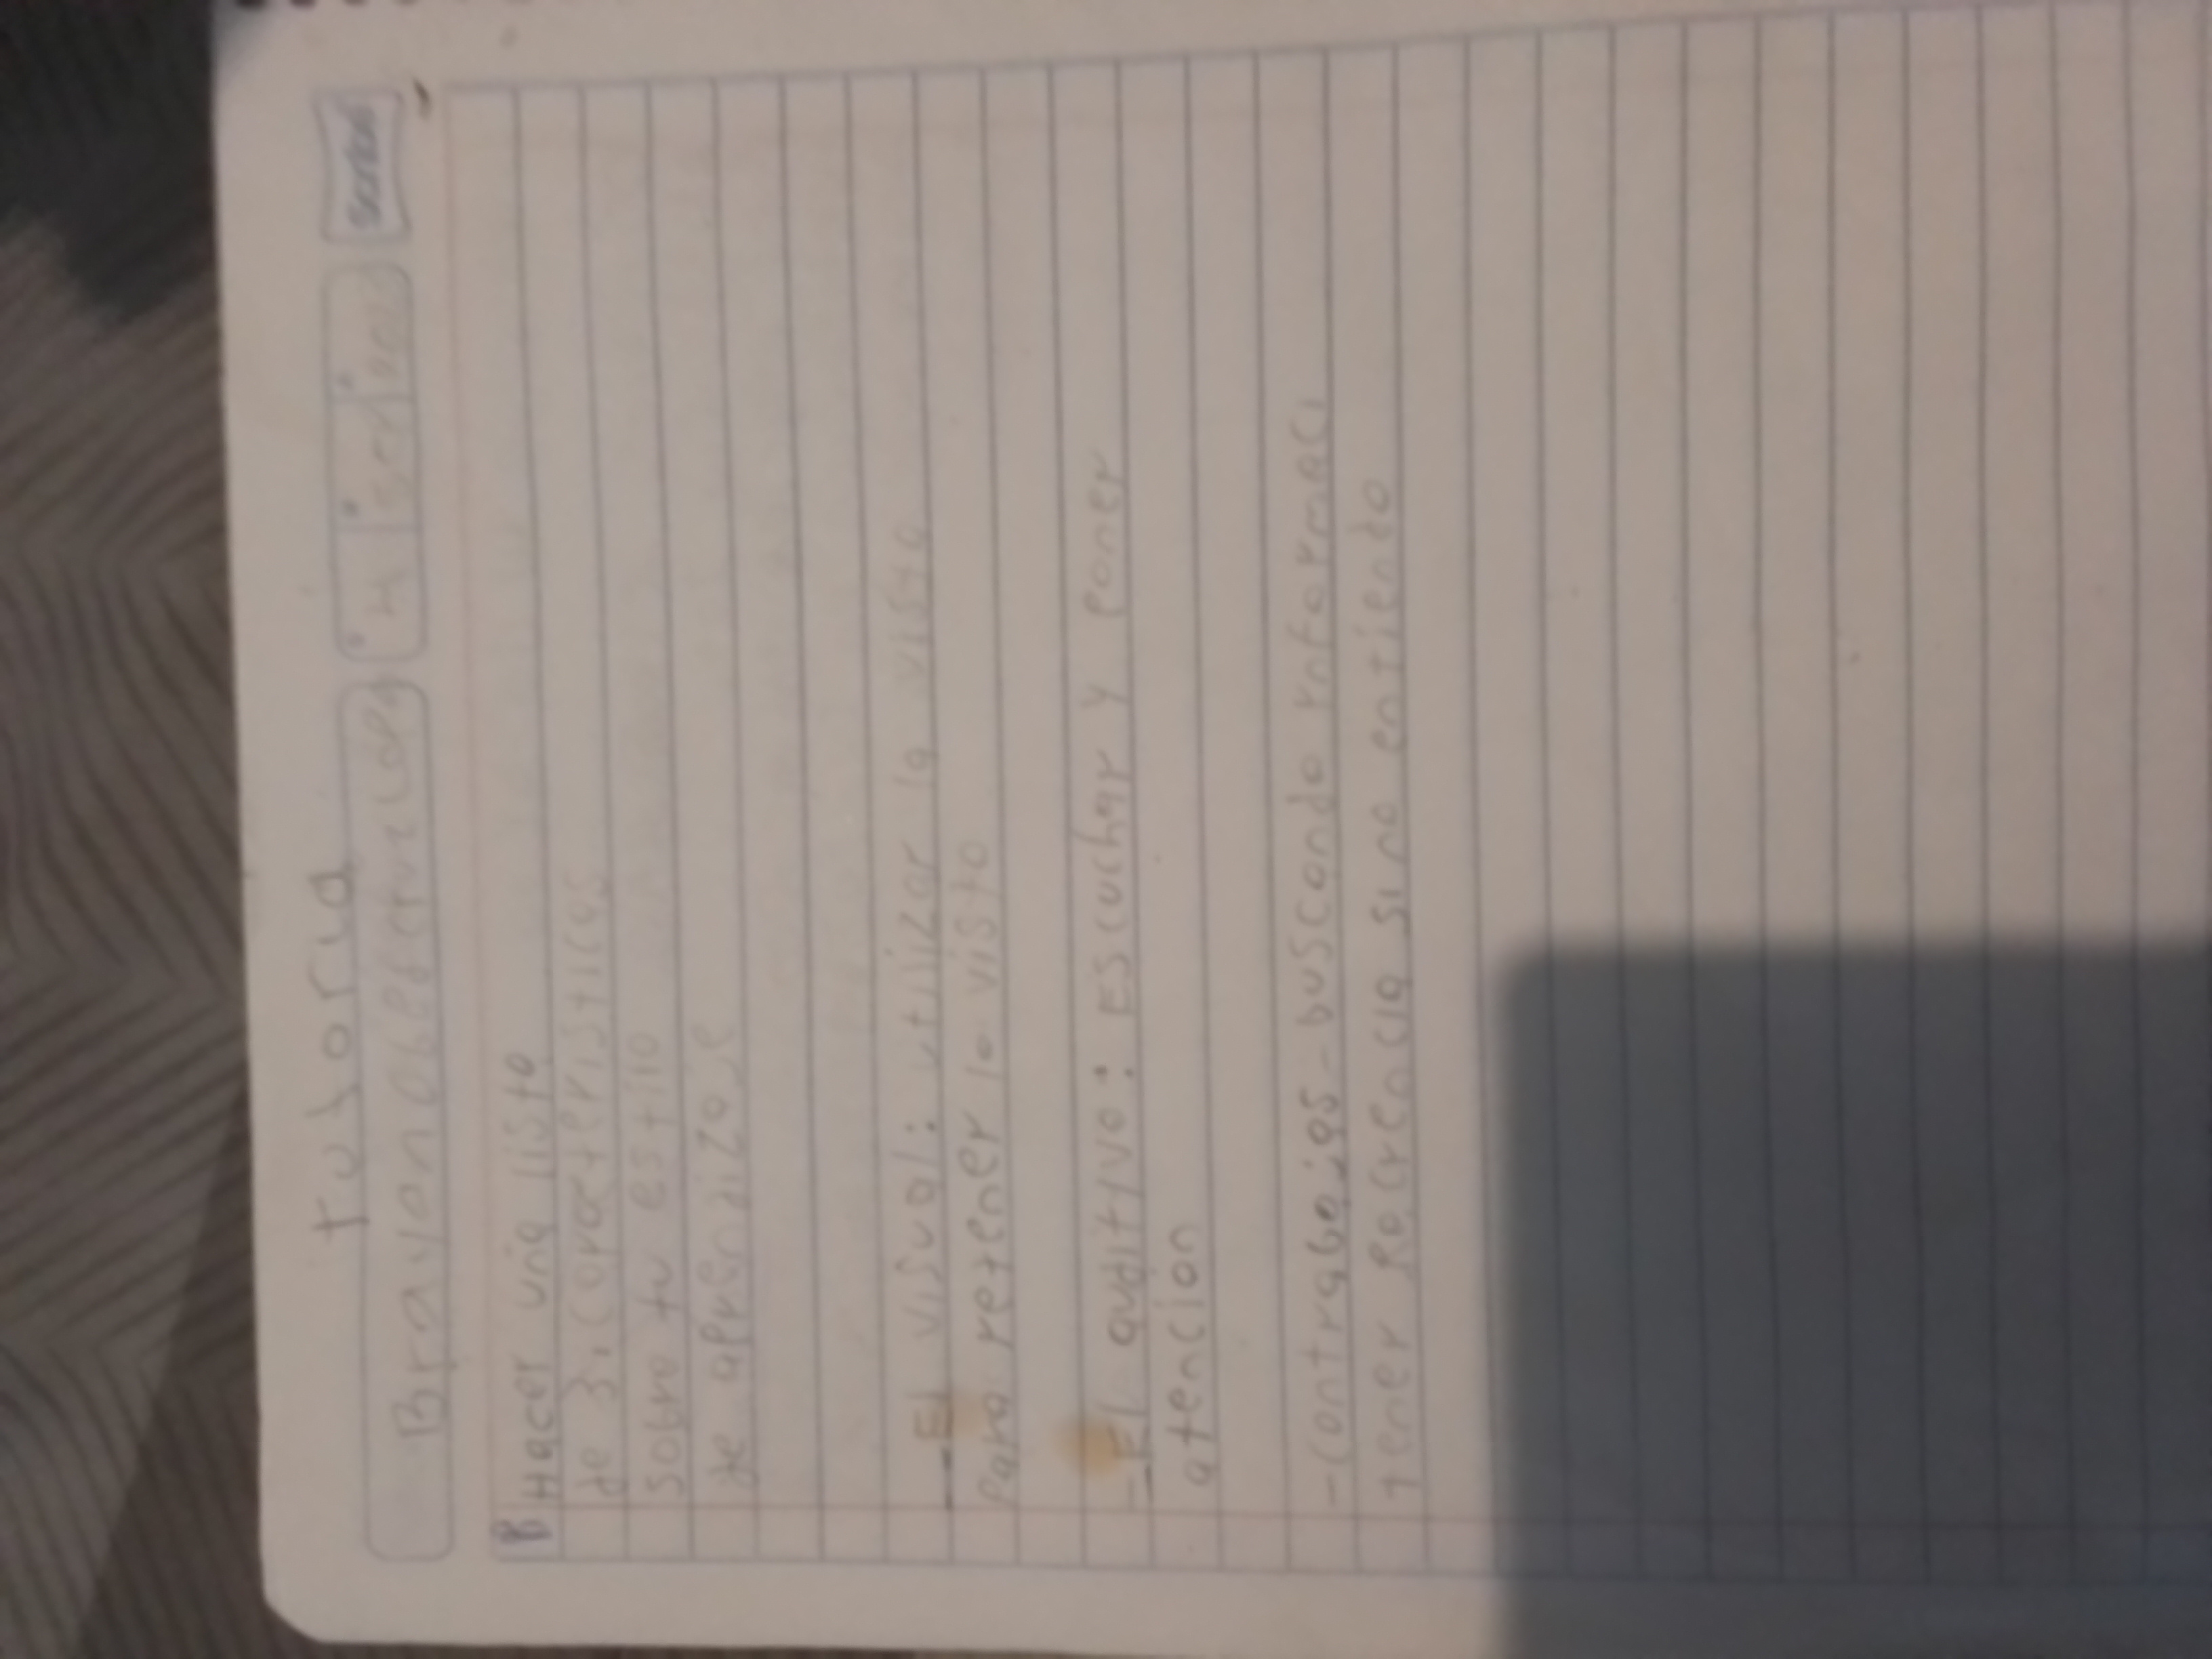 tutoria
Brayan
Hacer una lista
de 3. caracteristicas
sobre tu estilo
de aprendizaje
- El visual: utilizar la vista
para retener lo visto
- El auditivo: Escuchar y poner
atencion
- contrabajas - buscando informaci
tener paciencia si no entiendo